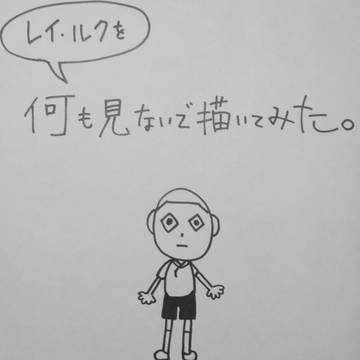 レイ・ルクを
何も見ないで描いてみた。